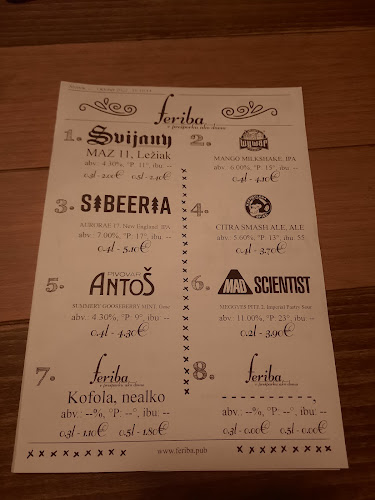 feriba
v prešporku ako doma
1. Svijany
MAZ 11, Ležiak
abv.: 4.30%, °P: 11°, ibu: --
0.3l - 2.00€ 0.5l - 2.40€
2. WYWAR
MANGO MILKSHAKE, IPA
abv.: 6.00%, °P: 15°, ibu: --
0.4l - 4.10€
3. SIBEERIA
abv.: 7.00%, °P: 17°, ibu: --
0.4l - 5.10€
4.
CITRA SMASH ALE, ALE
abv.: 5.60%, °P: 13°, ibu: 55
0.4l - 3.70€
5. PIVOVAR
ANTOŠ
SUMMERY GOOSEBERRY MINT, Gose
abv.: 4.30%, °P: 9°, ibu: --
0.4l - 4.30€
6. MAD SCIENTIST
abv.: 11.00%, °P: 23°, ibu: --
0.2l - 3.90€
7. feriba
v prešporku ako doma
Kofola, nealko
abv.: --%, °P: --°, ibu: --
0.3l - 1.10€ 0.5l - 1.80€
8. feriba
v prešporku ako doma
--------,
abv.: --%, °P: --°, ibu: --
0.3l - 0.00€ 0.5l - 0.00€
www.feriba.pub